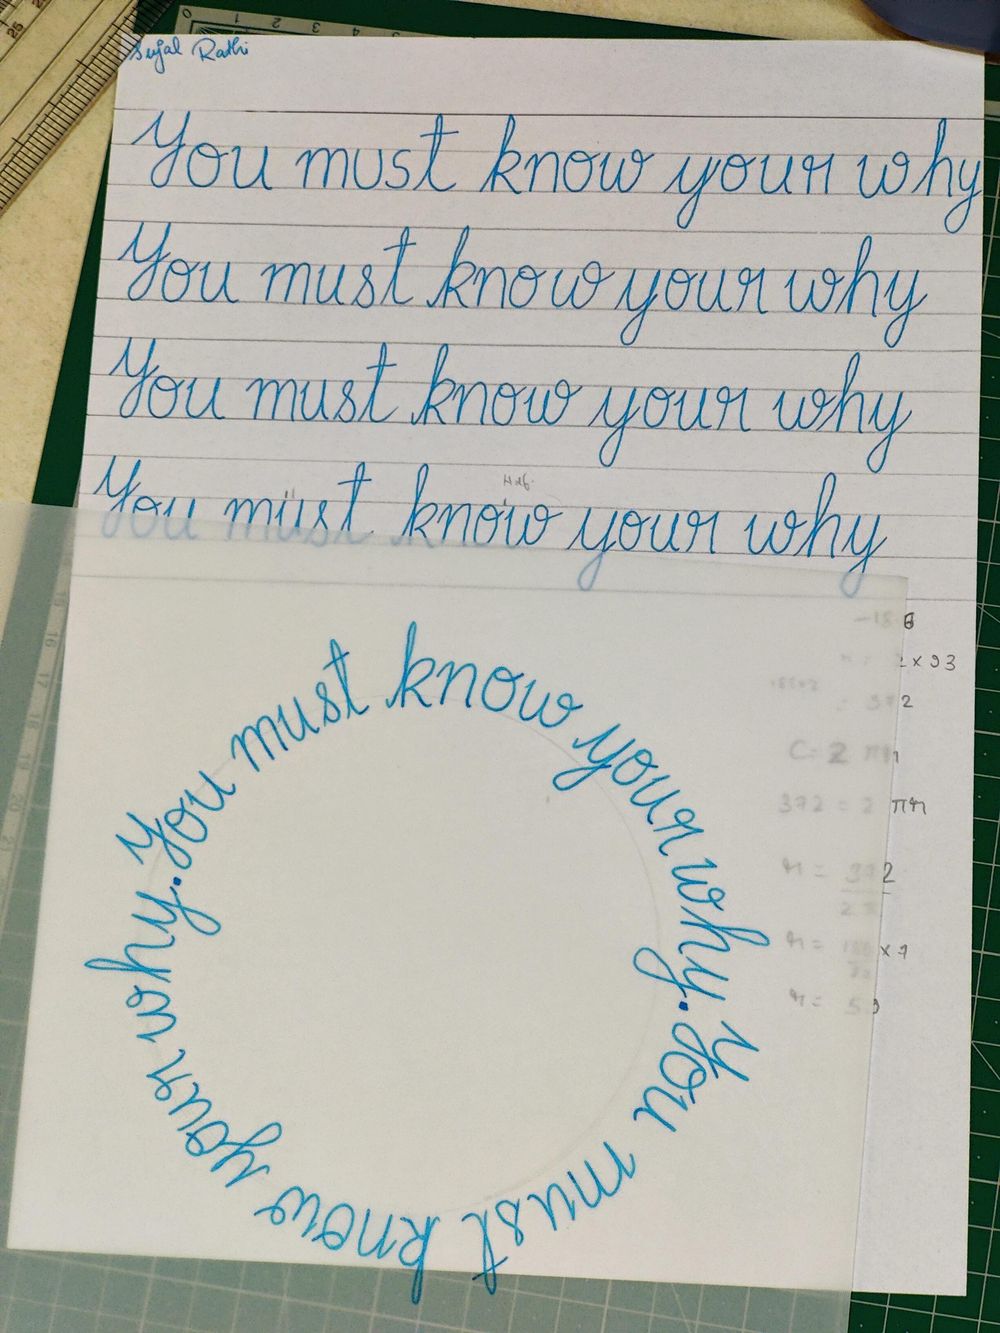 Sujal Rathi
You must know your why
You must know your why
You must know your why
You must know your why
You must know your why.
You must know your why.
2 x 93
C = 2 πr
372 = 2 πr